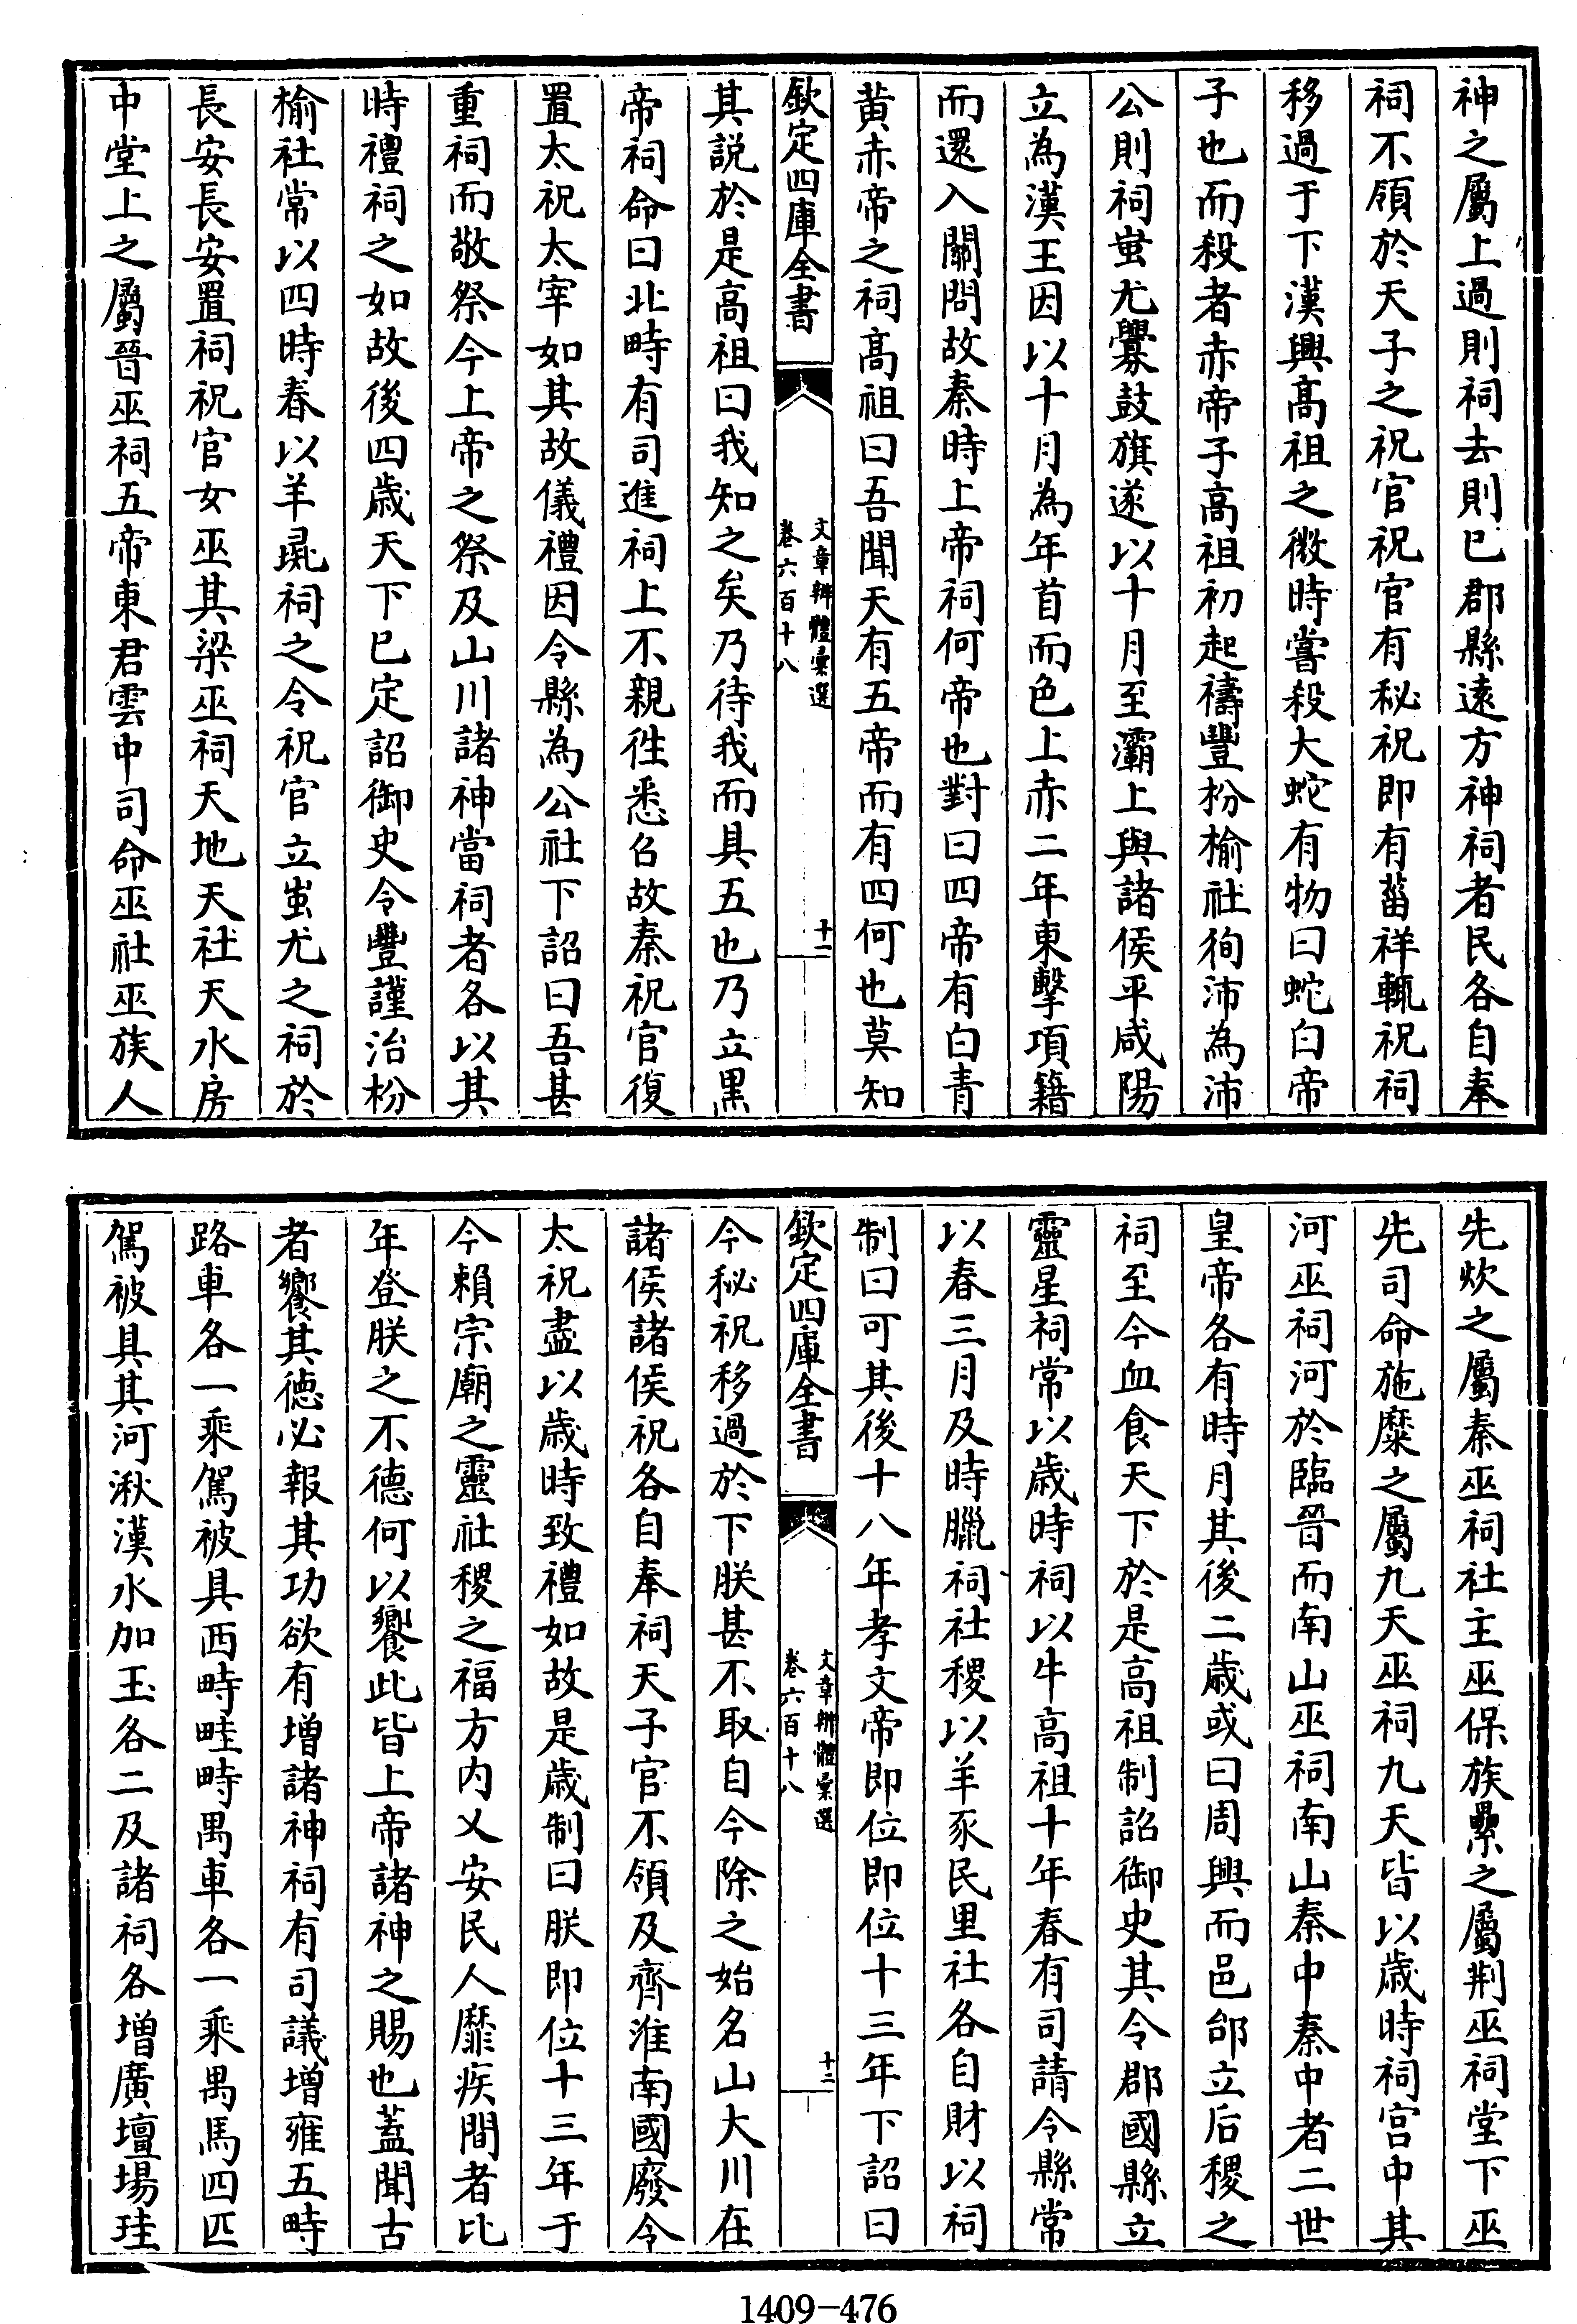 神之屬上過則祠去則已郡縣遠方神祠者民各自奉
祠不領於天子之祝官祝官有秘祝即有菑祥輒祝祠
移過于下漢興高祖之微時嘗殺大蛇有物曰蛇白帝
子也而殺者赤帝子高祖初起禱豐枌榆社徇沛為沛
公則祠蚩尤釁鼓旗遂以十月至灞上與諸侯平咸陽
立為漢王因以十月為年首而色上赤二年東擊項籍
而還入關問故秦時上帝祠何帝也對曰四帝有白青
黄赤帝之祠高祖曰吾聞天有五帝而有四何也莫知
欽定四庫全書
文章辨體彚選
卷六百十八
十一
其說於是高祖曰我知之矣乃待我而具五也乃立黑
帝祠命曰北畤有司進祠上不親徃悉召故秦祝官復
置太祝太宰如其故儀禮因令縣為公社下詔曰吾甚
重祠而敬祭今上帝之祭及山川諸神當祠者各以其
時禮祠之如故後四歲天下已定詔御史令豐謹治枌
榆社常以四時春以羊彘祠之令祝官立蚩尤之祠於
長安長安置祠祝官女巫其梁巫祠天地天社天水房
中堂上之屬晉巫祠五帝東君雲中司命巫社巫族人
先炊之屬秦巫祠社主巫保族纍之屬荆巫祠堂下巫
先司命施糜之屬九天巫祠九天皆以歲時祠宫中其
河巫祠河於臨晉而南山巫祠南山秦中秦中者二世
皇帝各有時月其後二歲或曰周興而邑邰立后稷之
祠至今血食天下於是高祖制詔御史其令郡國縣立
靈星祠常以歲時祠以牛高祖十年春有司請令縣常
以春三月及時臘祠社稷以羊豕民里社各自財以祠
制曰可其後十八年孝文帝即位即位十三年下詔曰
欽定四庫全書
文章辨體彚選
卷六百十八
十二
今秘祝移過於下朕甚不取自今除之始名山大川在
諸侯諸侯祝各自奉祠天子官不領及齊淮南國廢令
太祝盡以歲時致禮如故是歲制曰朕即位十三年于
今賴宗廟之靈社稷之福方内乂安民人靡疾間者比
年登朕之不德何以饗此皆上帝諸神之賜也蓋聞古
者饗其德必報其功欲有增諸神祠有司議增雍五畤
路車各一乘駕被具西畤畦畤禺車各一乘禺馬四匹
駕被具其河湫漢水加玉各二及諸祠各增廣壇場珪
1409-476